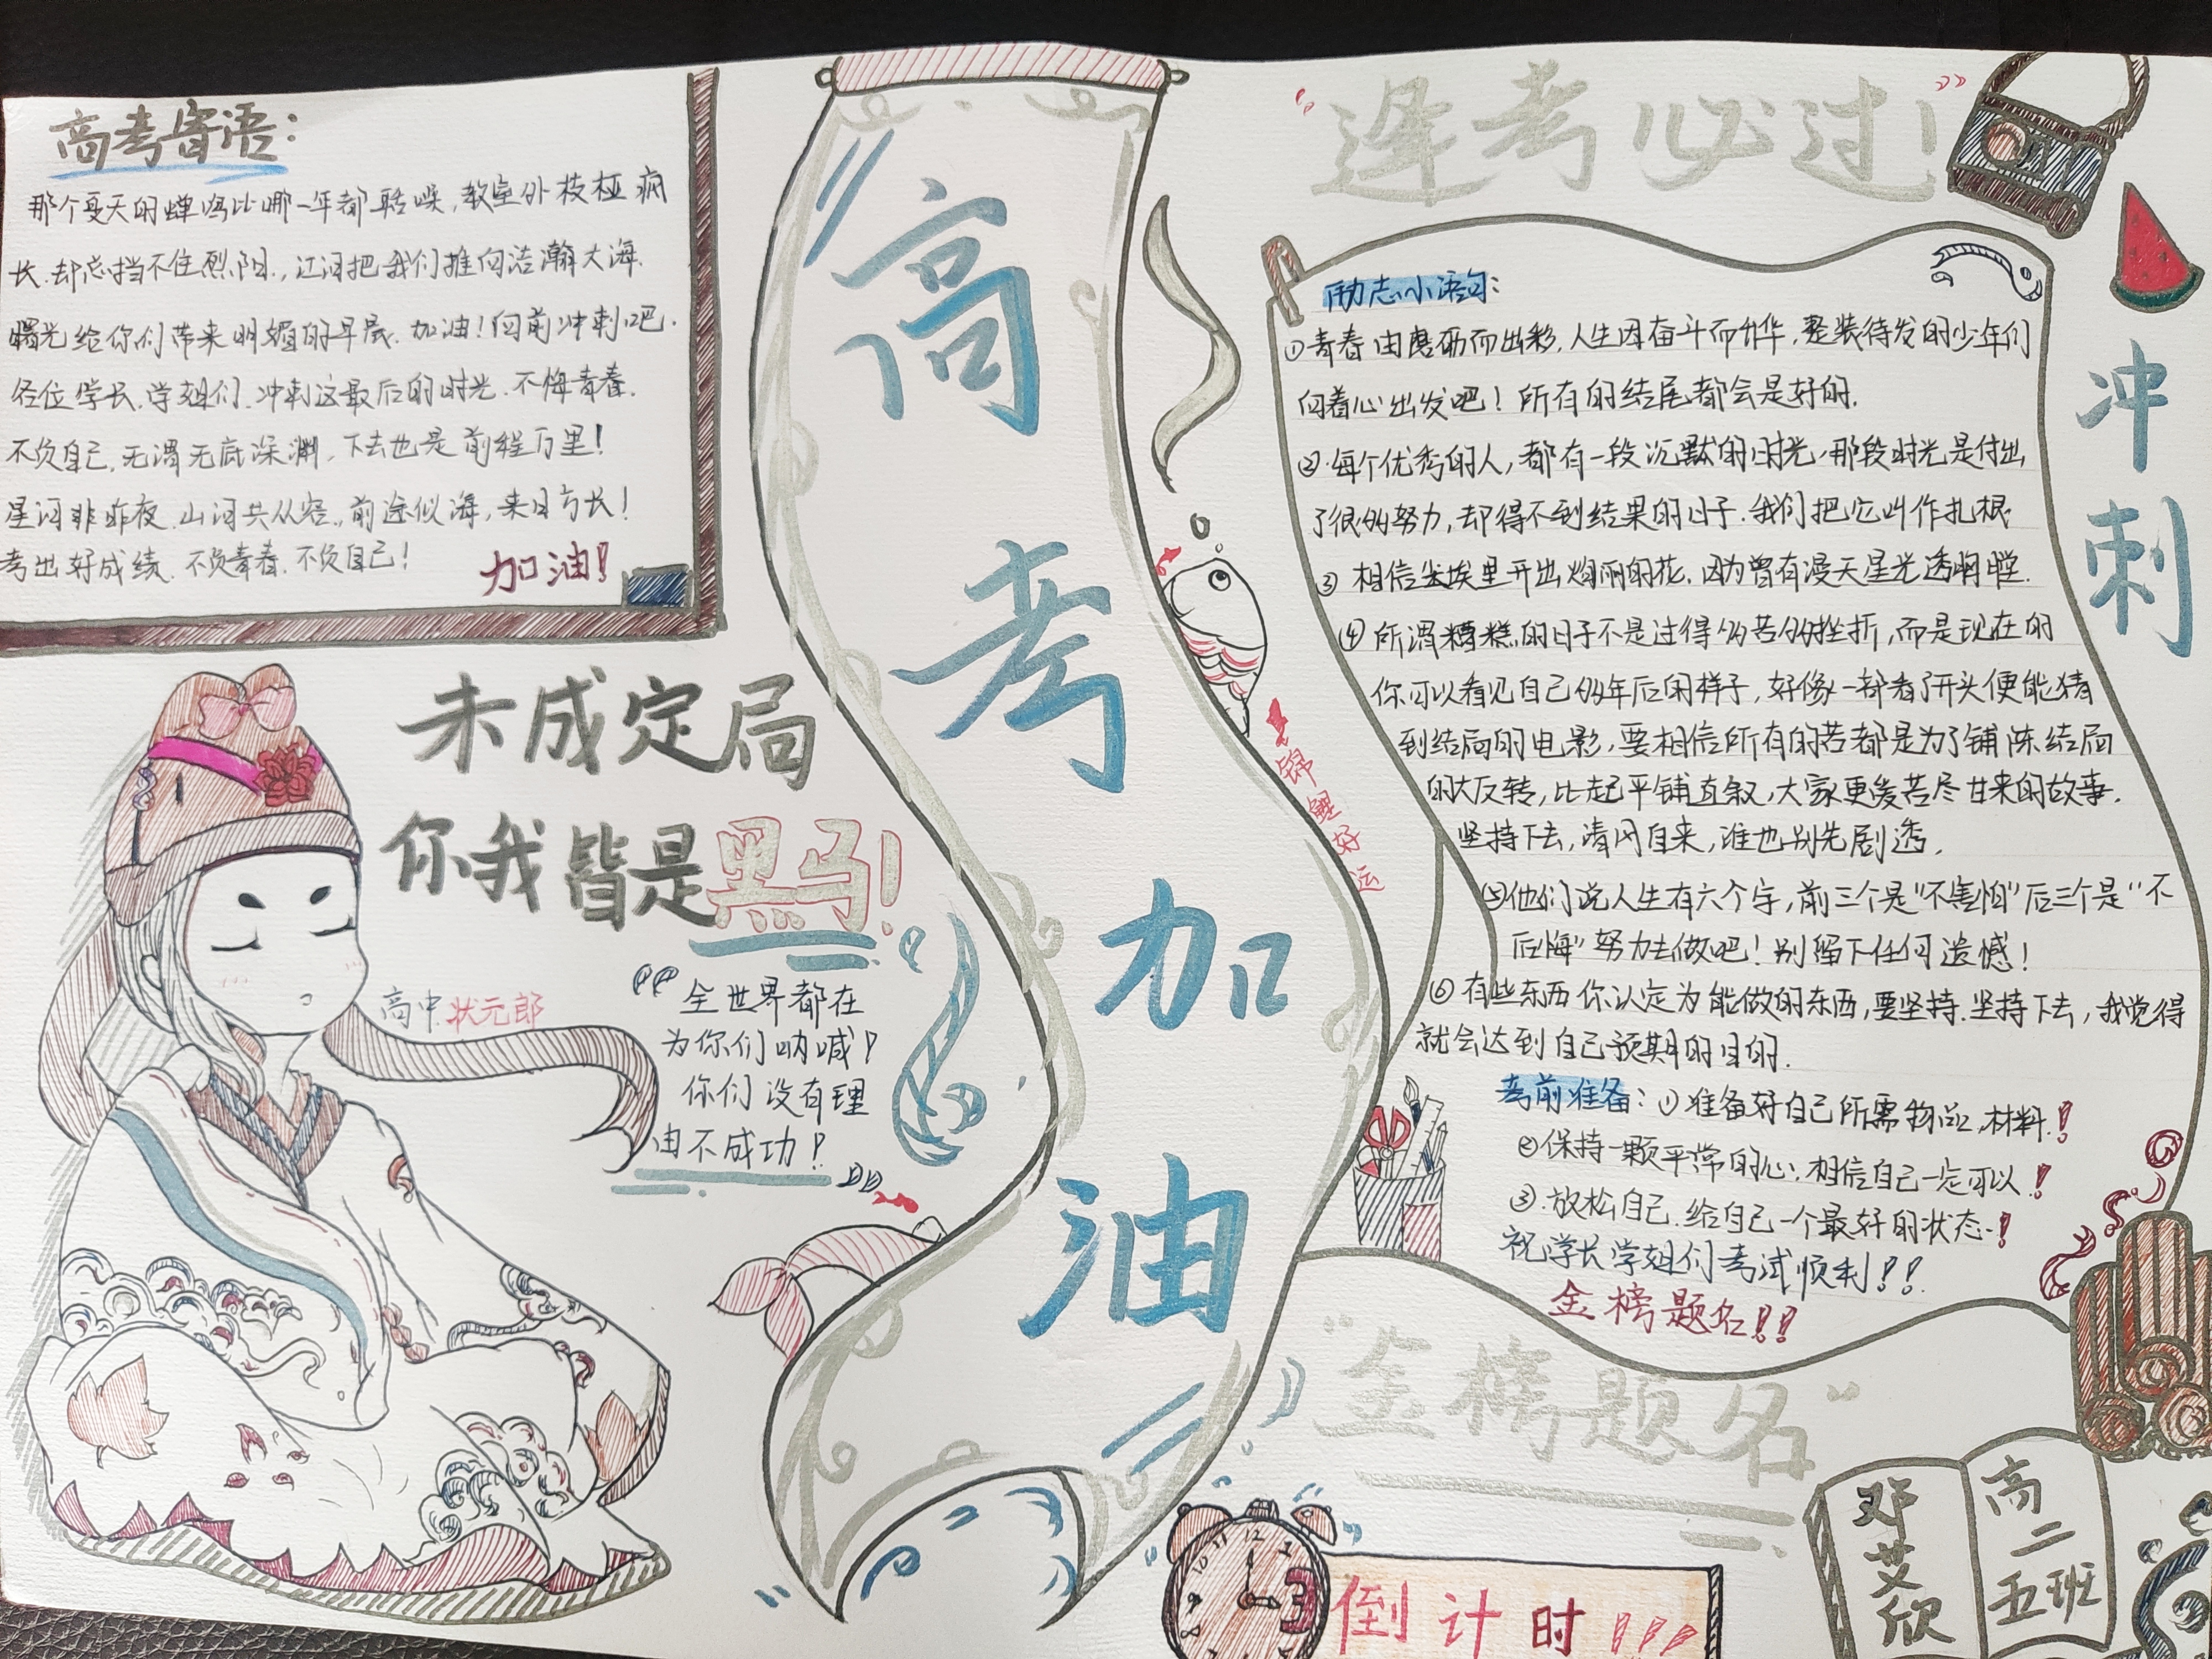 高考寄语：
那个夏天的蝉鸣比哪一年都聒噪，教室外枝桠疯
长．却总挡不住烈阳．，江河把我们推向浩瀚大海．
曙光给你们带来明媚的早晨．加油！向前冲刺吧．
各位学长．学姐们．冲刺这最后的时光．不悔青春．
不负自己，无谓无底深渊．下去也是前程万里！
星河非昨夜．山河共从容．，前途似海，来日方长！
考出好成绩．不负青春．不负自己！
加油！
未成定局
你我皆是黑马！
高中状元郎
“全世界都在
为你们呐喊！
你们没有理
由不成功！”
高
考
加
油
锦
鲤
好
运
“逢考必过！”
冲
刺
励志小语句：
①青春由磨砺而出彩，人生因奋斗而升华，整装待发的少年们
向着心出发吧！所有的结尾都会是好的．
②．每个优秀的人，都有一段沉默的时光，那段时光是付出
了很多努力，却得不到结果的日子．我们把它叫作扎根
③ 相信尘埃里开出绚丽的花，因为曾有漫天星光透明瞠．
④所谓糟糕的日子不是过得多苦多挫折，而是现在的
你可以看见自己多年后的样子，好像一部看了开头便能猜
到结局的电影，要相信所有的苦都是为了铺陈结局
的大反转，比起平铺直叙，大家更爱苦尽甘来的故事．
坚持下去，清风自来，谁也别先剧透．
⑤他们说人生有六个字，前三个是“不害怕”后三个是“不
后悔”努力去做吧！别留下任何遗憾！
⑥有些东西你认定为能做的东西，要坚持．坚持下去，我觉得
就会达到自己预期的目的．
考前准备：①准备好自己所需物品，材料！
②保持一颗平常的心，相信自己一定可以！
③．放松自己．给自己一个最好的状态．！
祝学长学姐们考试顺利！！
金榜题名！！
“金榜题名”
倒计时！！！
邓艾欣
高二五班